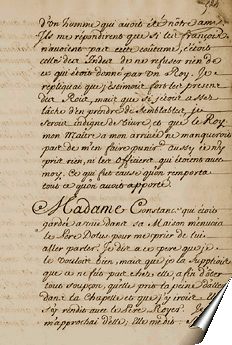 d'un homme qui avoit été nôtre ami
Ils me répondirent que si les françois
n'avoient pas cette coûtume, c'étoit
celle des Indes de ne refuser rien de
ce qui étoit donné par un Roy. Je
repliquai que j'estimois fort les presens
des Rois, mais que si j'étois assez
lâche d'en prendre de semblables, je
serois indigne de vivre et que le Roy
mon Maître a mon arrivée ne manqueroit
pas de m'en faire punir; aussy je n'y
pris rien, ni les Officiers qui étoient avec
moy. Ce qui fut cause qu'on remporta
tout ce qu'on avoit apporté.
Madame Constance qui étoit
gardée a vûe dans sa Maison m'envoia
le Pere me prier de lui
aller parler. Je dis a ce pere que je
le voulois bien, mais que je la suppliois
que ce ne fut pas chez elle a fin d'ôter
tout soupçon, qu'elle prit la peine d'aller
dans la Chapelle et que j'y irois. Elle
s'y rendit avec le Pere Royer. Je
m'aprochai d'elle; Elle me dit